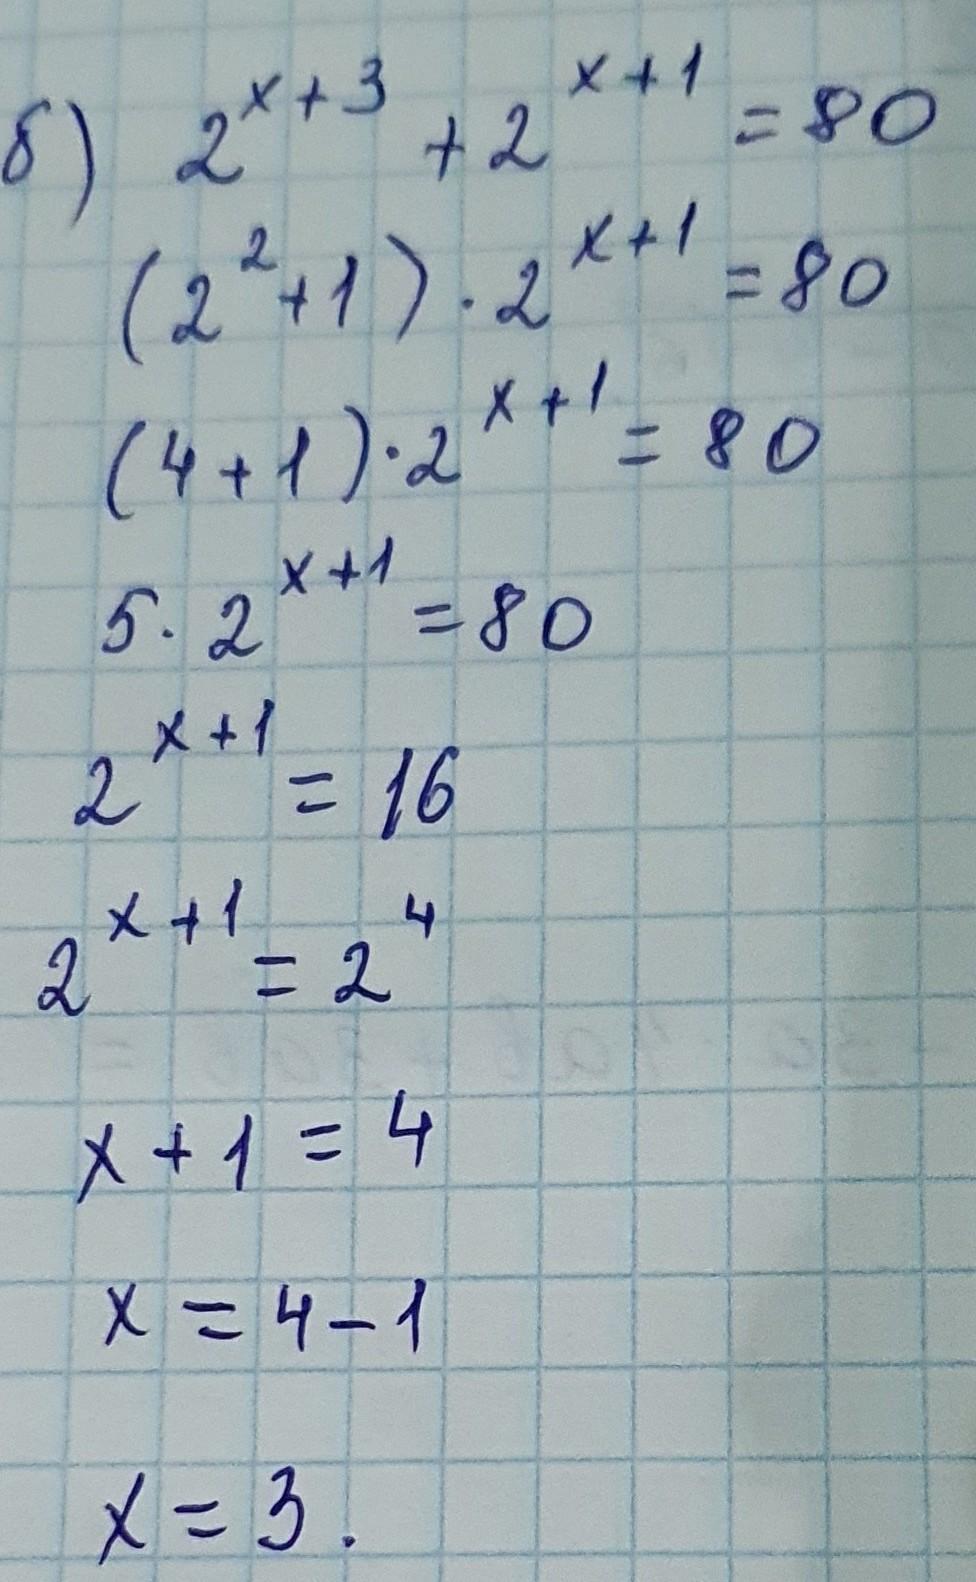 б) 2^{x+3} + 2^{x+1} = 80
(2^2+1) · 2^{x+1} = 80
(4+1) · 2^{x+1} = 80
5 · 2^{x+1} = 80
2^{x+1} = 16
2^{x+1} = 2^4
x + 1 = 4
x = 4 - 1
x = 3.